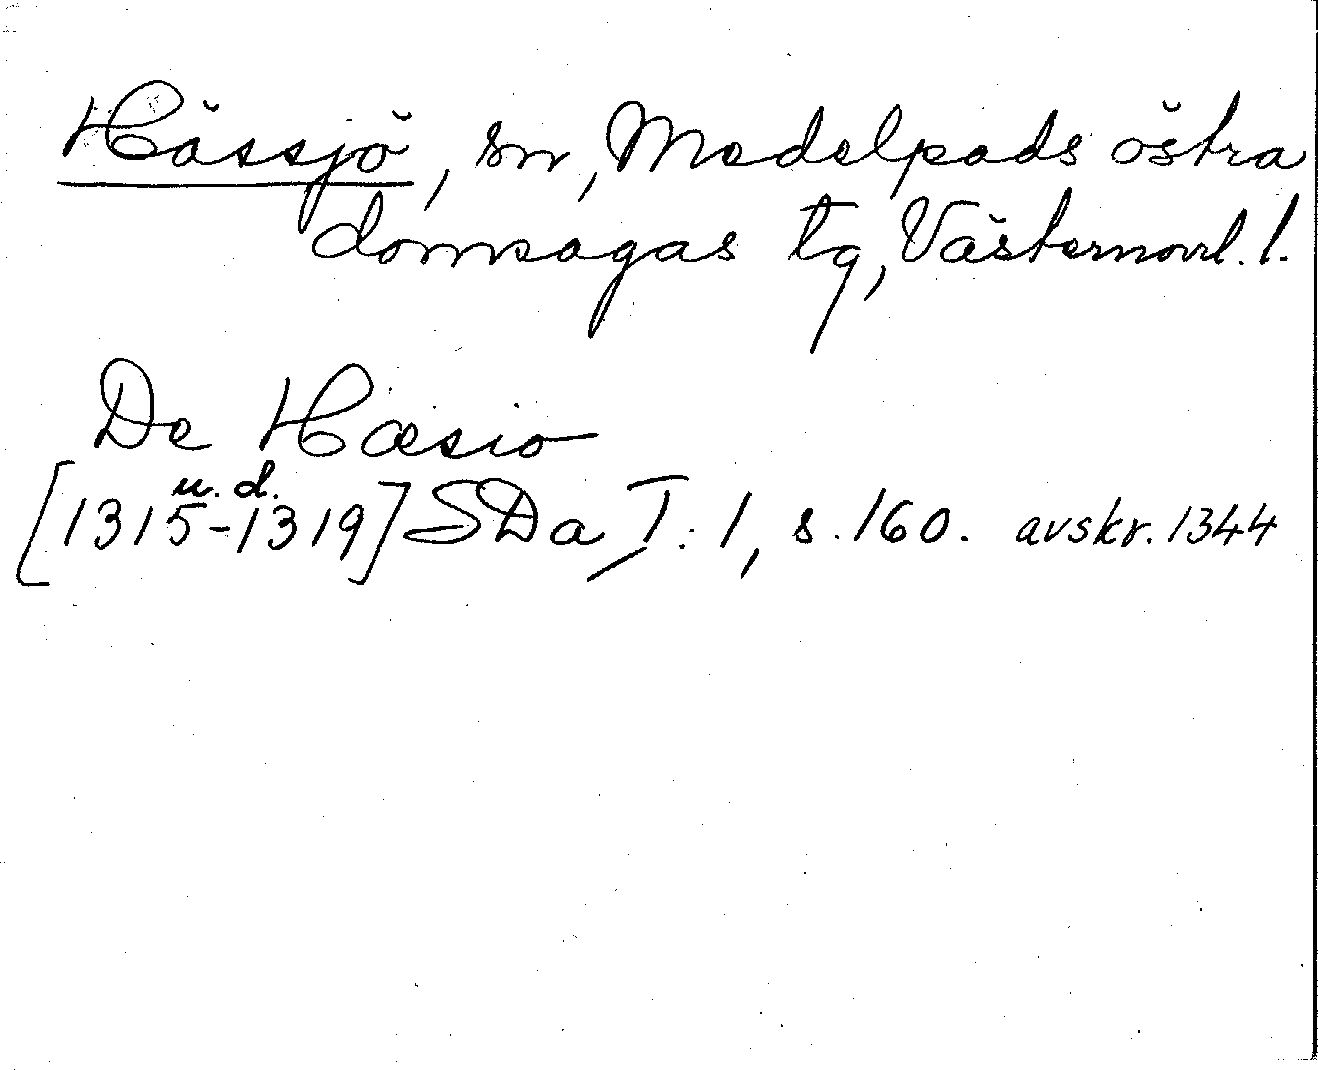 Hässjö, sn, Medelpads östra
domsagas tg, Västernorrl. l.
De Hæsio
u. d.
[1315-1319] SDa, T. 1, s. 160. avskr. 1344